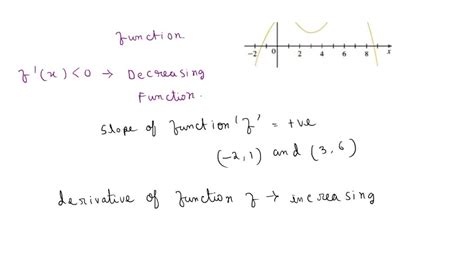 function
-2 0 2 4 6 8 x
f'(x) < 0 → Decreasing
Function.
Slope of function 'f' = +ve
(-2, 1) and (3, 6)
derivative of function f → increasing